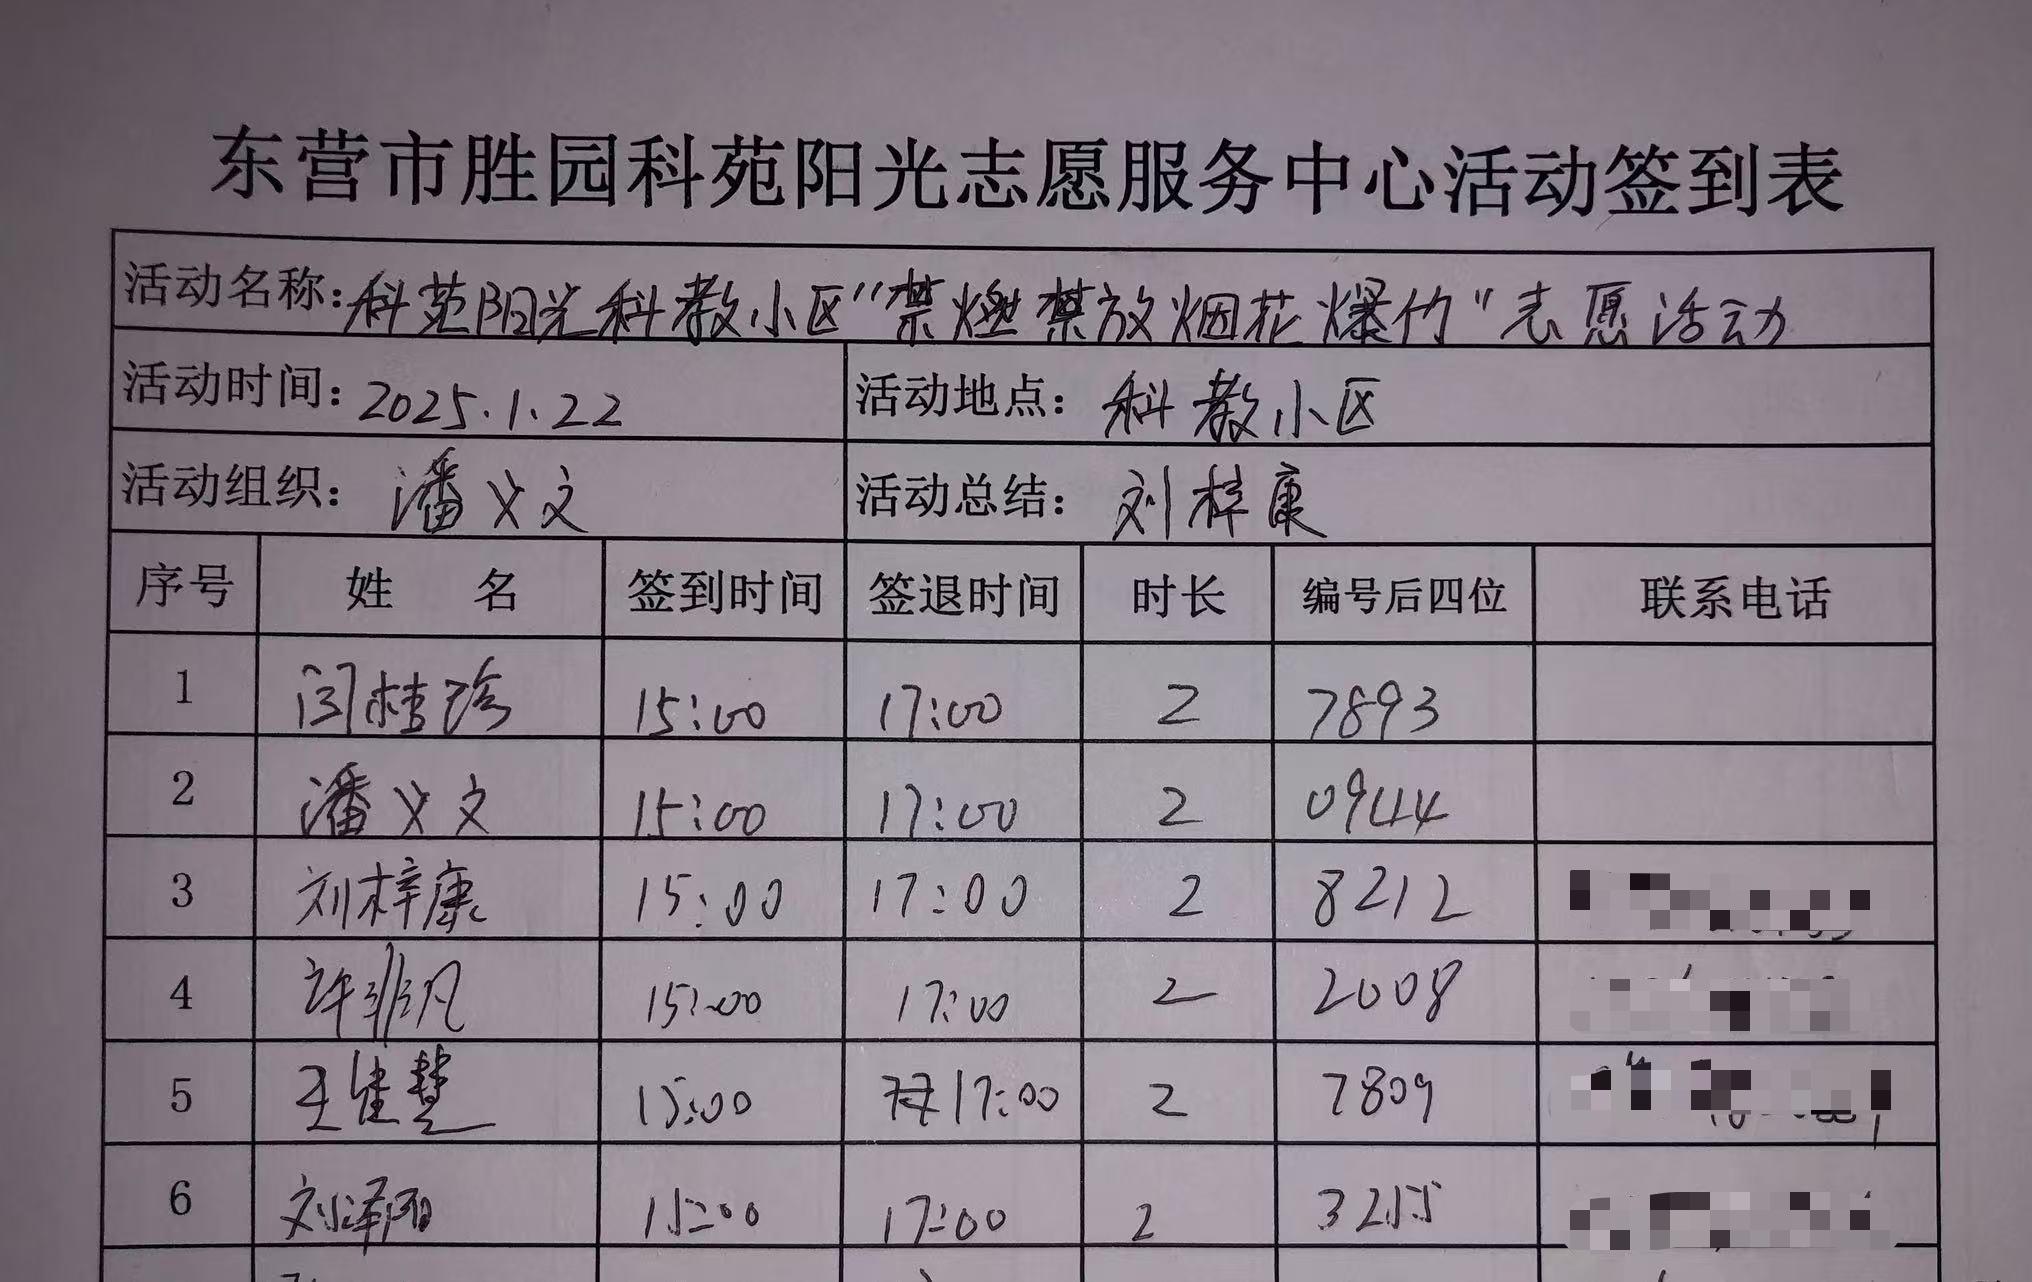 东营市胜园科苑阳光志愿服务中心活动签到表
活动名称：科苑阳光科教小区“禁燃禁放烟花爆竹”志愿活动
活动时间：2025.1.22 活动地点：科教小区
活动组织：潘义文 活动总结：刘梓康
序号 姓名 签到时间 签退时间 时长 编号后四位 联系电话
1 闫桂珍 15:00 17:00 2 7893
2 潘义文 15:00 17:00 2 0944
3 刘梓康 15:00 17:00 2 8212
4 许非凡 15:00 17:00 2 2008
5 王佳慧 15:00 17:00 2 7809
6 刘泽阳 15:00 17:00 2 3255